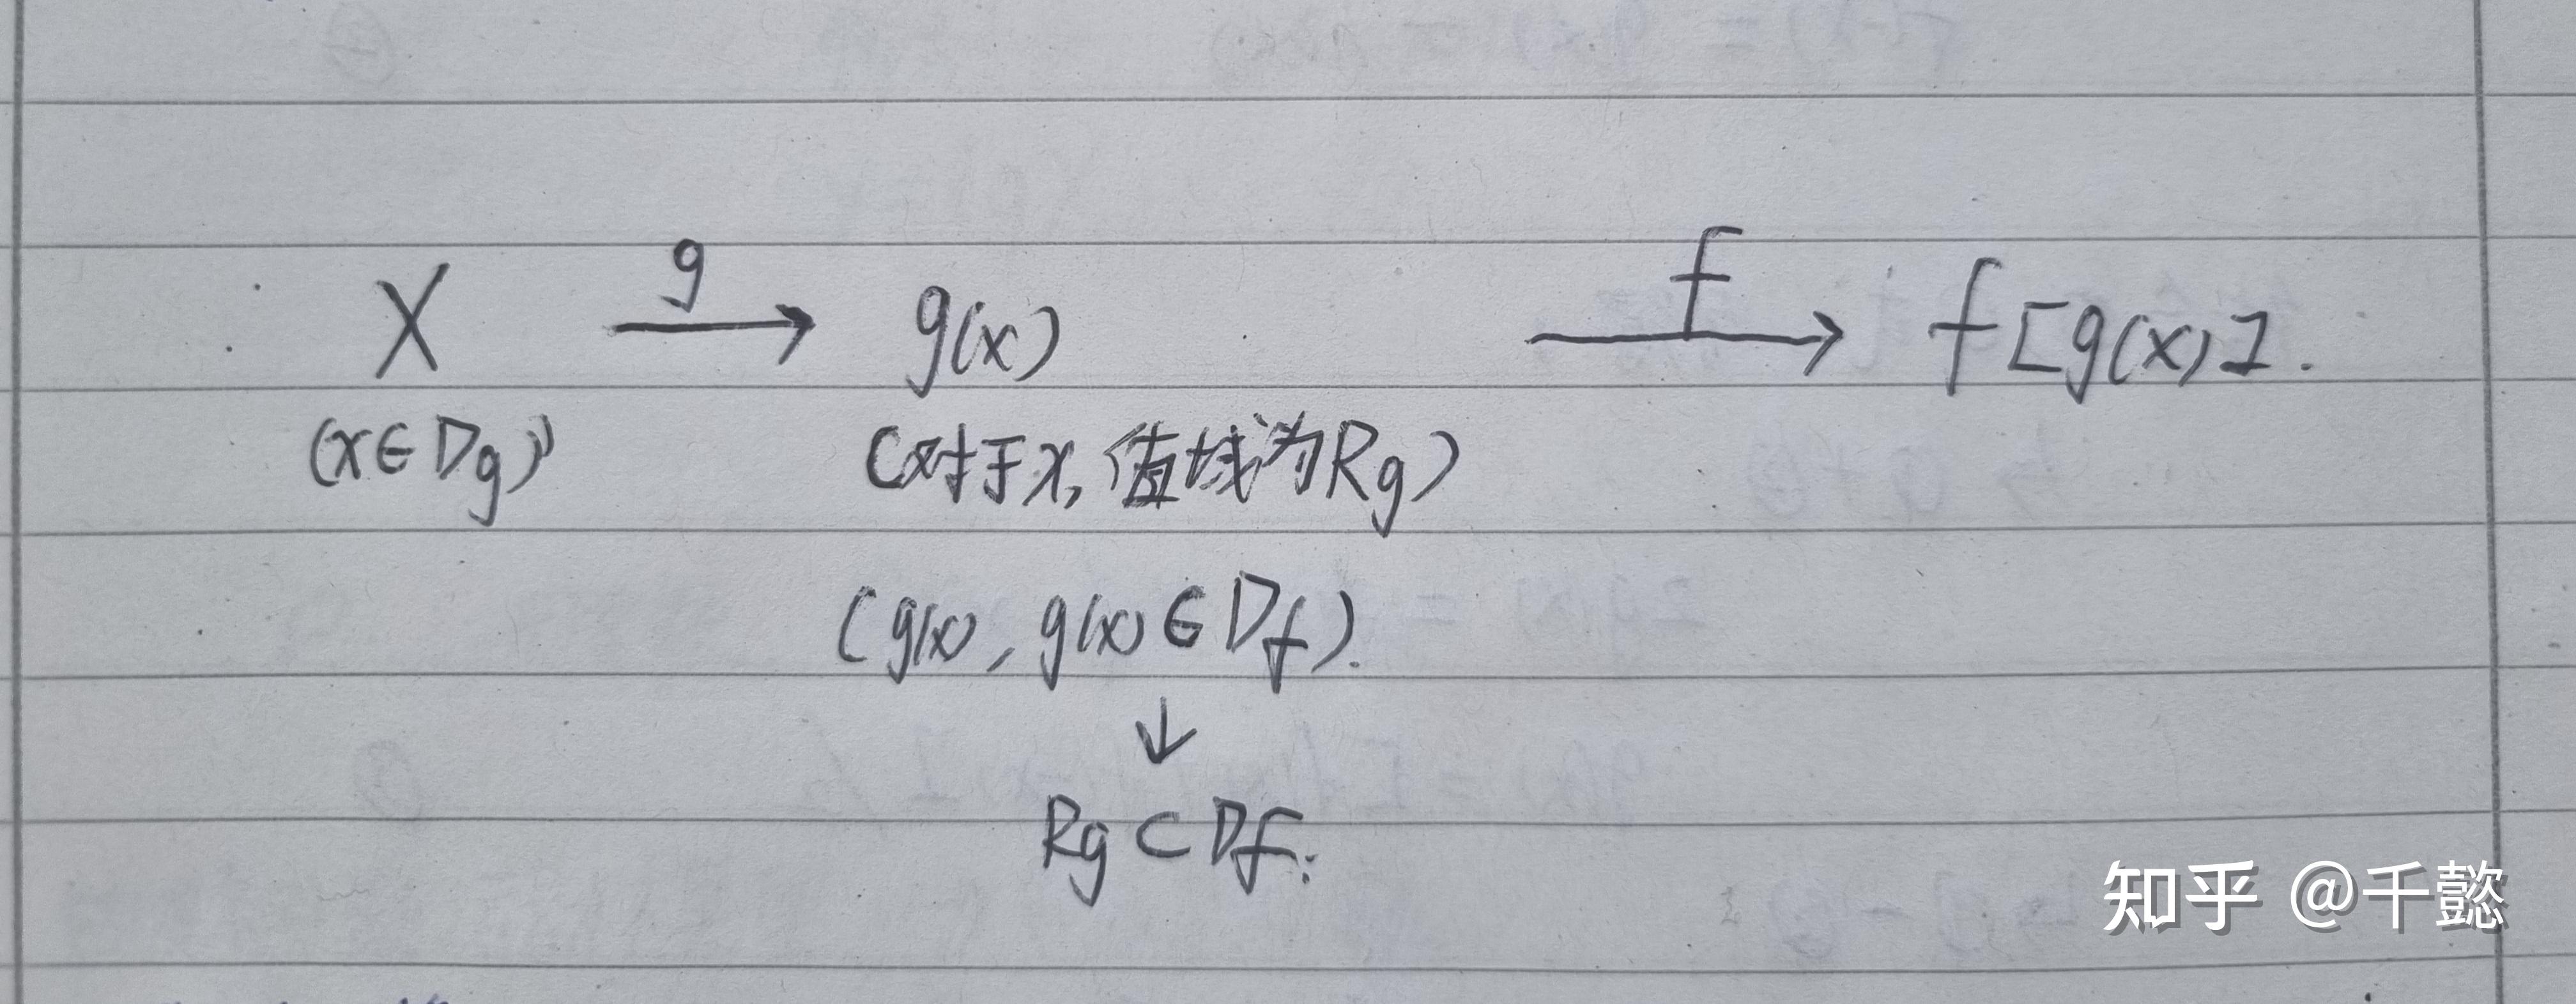 X g→ g(x) f→ f[g(x)].
(x∈Dg) (对于x,值域为Rg)
(g(x), g(x)∈Df).
↓
Rg⊂Df:
知乎 @千懿